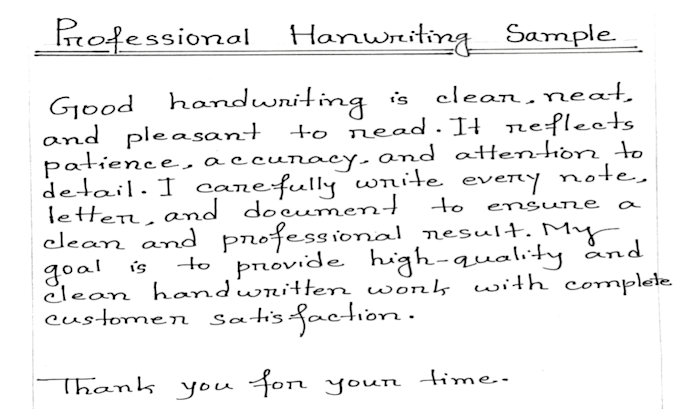 Professional Hanwriting Sample
Good handwriting is clean, neat,
and pleasant to read. It reflects
patience, accuracy, and attention to
detail. I carefully write every note,
letter, and document to ensure a
clean and professional result. My
goal is to provide high-quality and
clean handwritten work with complete
customer satisfaction.
Thank you for your time.